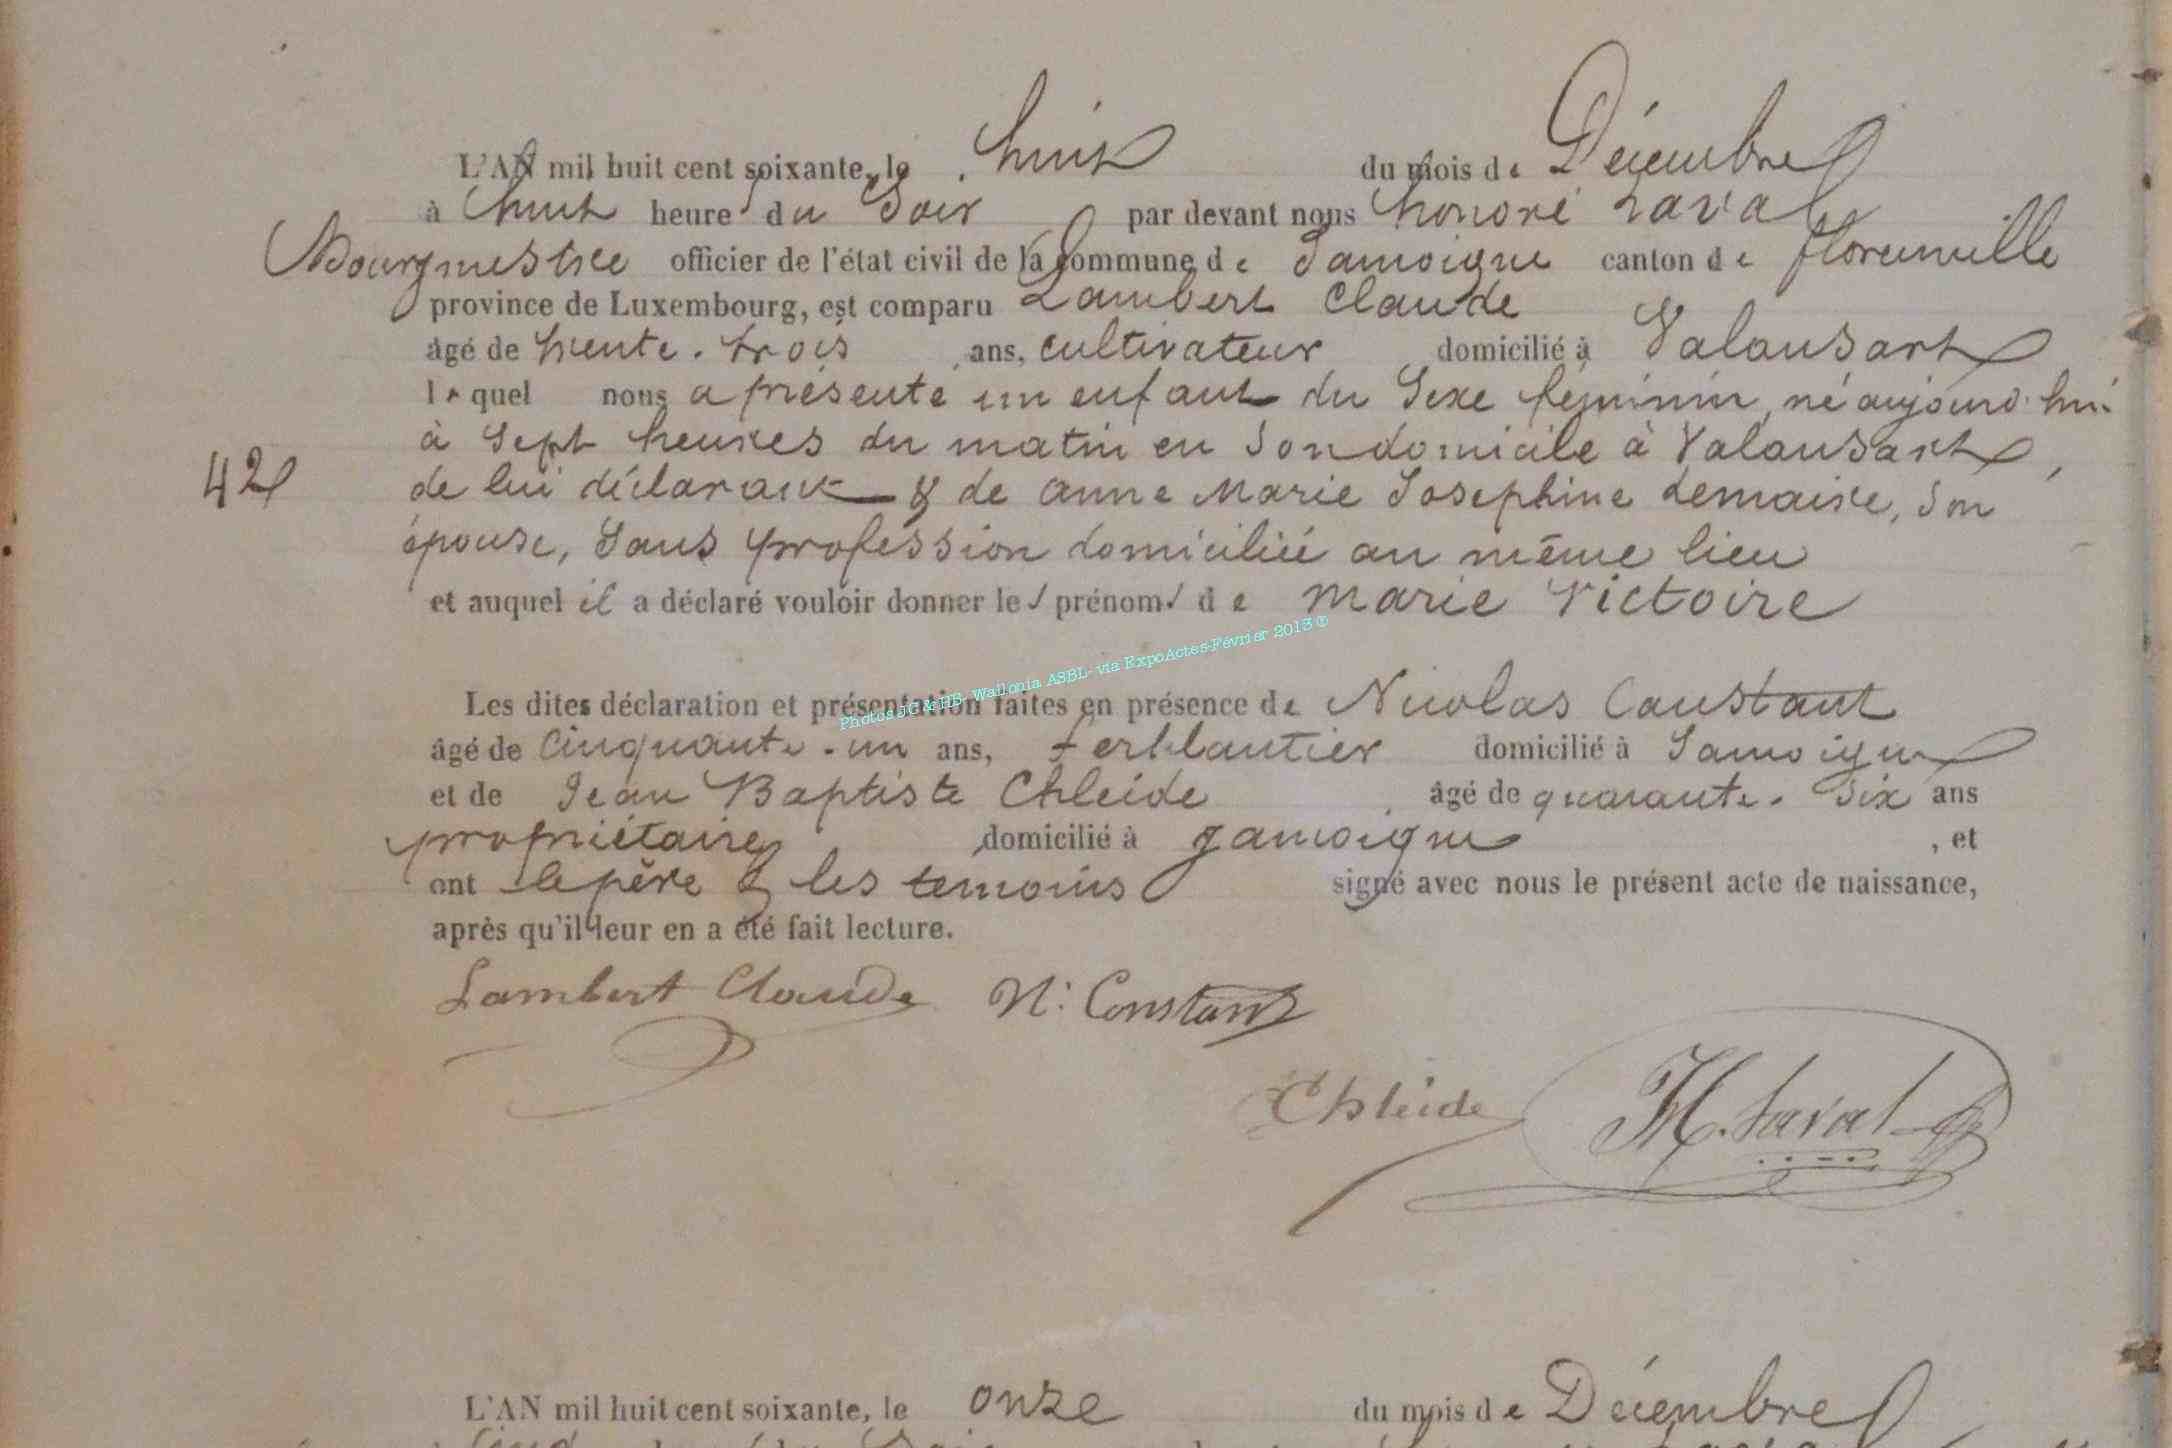 L'AN mil huit cent soixante, le huit du mois de Décembre
à huit heure du Soir par devant nous honoré Laval
Bourgmestre officier de l'état civil de la commune de Jamoigne canton de florenville
province de Luxembourg, est comparu Lambert Claude
âgé de trente-trois ans, cultivateur domicilié à Valansart
lequel nous a présenté un enfant du Sexe féminin, né aujourd'hui
à Sept heures du matin en Son domicile à Valansart,
42 de lui déclarant & de anne Marie Josephine Lemaire, Son
épouse, Sans profession domiciliée au même lieu
et auquel il a déclaré vouloir donner les prénoms de Marie Victoire
Photos JC & HS- Wallonia ASBL- via ExpoActes-Février 2013 ©
Les dites déclaration et présentation faites en présence de Nicolas Constant
âgé de Cinquante-un ans, ferblantier domicilié à Jamoigne
et de Jean Baptiste Chleide âgé de quarante-Six ans
propriétaire, domicilié à Jamoigne, et
ont le père & les temoins signé avec nous le présent acte de naissance,
après qu'il leur en a été fait lecture.
Lambert Claude N: Constant
Chleide H. Laval
L'AN mil huit cent soixante, le onze du mois de Décembre